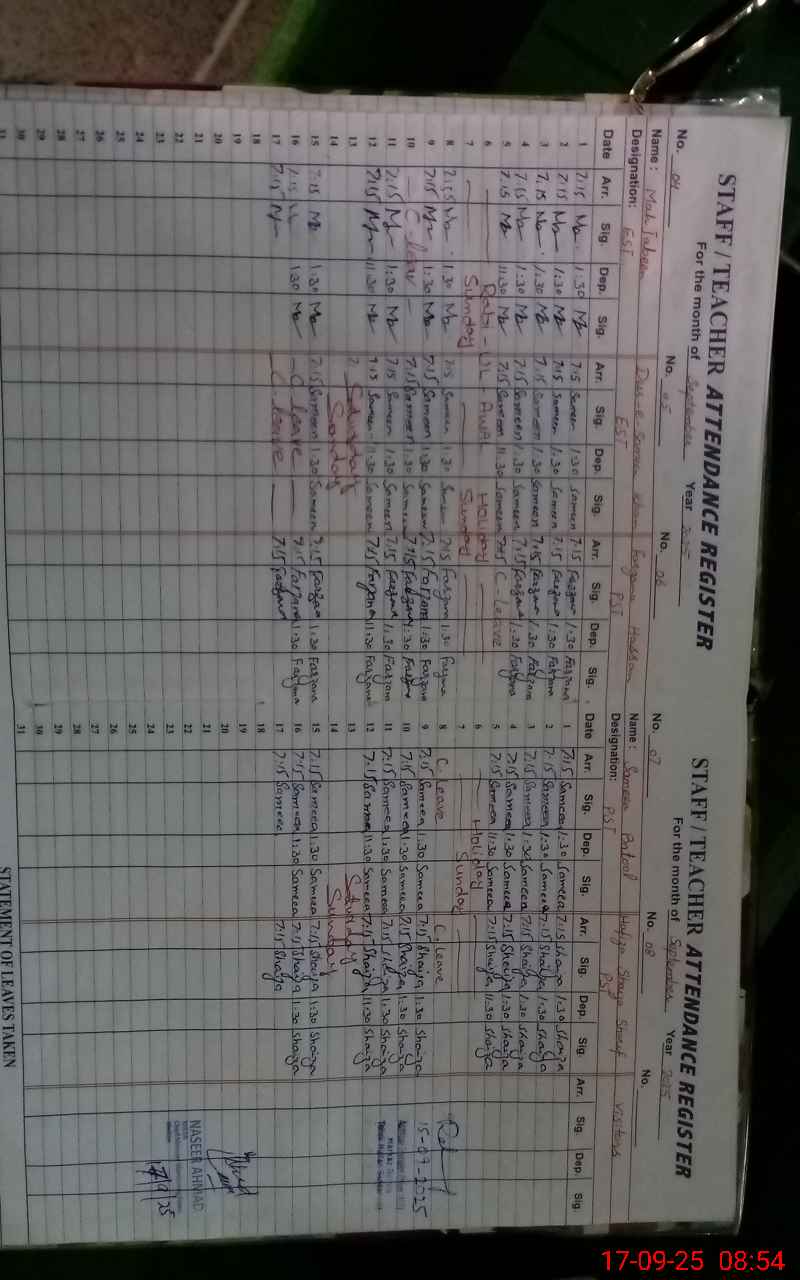 STAFF / TEACHER ATTENDANCE REGISTER
For the month of September Year 2025
No. 04 No. 05 No. 06
Name: Mah Jabeen Dur-e-Sameen Khan Farzana Hassan
Designation: EST EST PST
Date Arr. Sig. Dep. Sig. Arr. Sig. Dep. Sig. Arr. Sig. Dep. Sig.
1 7:15 1:30 7:15 Sameen 1:30 Sameen 7:15 Farzana 1:30 Farzana
2 7:15 1:30 7:15 Sameen 1:30 Sameen 7:15 Farzana 1:30 Farzana
3 7:15 1:30 7:15 Sameen 1:30 Sameen 7:15 Farzana 1:30 Farzana
4 7:15 1:30 7:15 Sameen 1:30 Sameen 7:15 Farzana 1:30 Farzana
5 7:15 11:30 7:15 Sameen 11:30 Sameen 7:15 C-Leave
6 Rabi-UL-AWAL Holiday
7 Sunday Sunday
8 7:15 1:30 7:15 Sameen 1:30 Sameen 7:15 Farzana 1:30 Farzana
9 7:15 1:30 7:15 Sameen 1:30 Sameen 7:15 Farzana 1:30 Farzana
10 C-leav 7:15 Sameen 1:30 Sameen 7:15 Farzana 1:30 Farzana
11 7:15 1:30 7:15 Sameen 1:30 Sameen 7:15 Farzana 1:30 Farzana
12 7:15 11:30 7:15 Sameen 11:30 Sameen 7:15 Farzana 11:30 Farzana
13 Saturday
14 Sunday
15 7:15 1:30 7:15 Sameen 1:30 Sameen 7:15 Farzana 1:30 Farzana
16 7:15 1:30 C leave 7:15 Farzana 1:30 Farzana
17 7:15 C.leave 7:15 Farzana
18
19
20
21
22
23
24
25
26
27
28
29
30
31
STAFF / TEACHER ATTENDANCE REGISTER
For the month of September Year 2025
No. 07 No. 08 No.
Name: Sameea Batool Hafiza Shaiza Sharif Visitors
Designation: PST PST
Date Arr. Sig. Dep. Sig. Arr. Sig. Dep. Sig. Arr. Sig. Dep. Sig.
1 7:15 Sameea 1:30 Sameea 7:15 Shaiza 1:30 Shaiza
2 7:15 Sameea 1:30 Sameea 7:15 Shaiza 1:30 Shaiza
3 7:15 Sameea 1:30 Sameea 7:15 Shaiza 1:30 Shaiza
4 7:15 Sameea 1:30 Sameea 7:15 Shaiza 1:30 Shaiza
5 7:15 Sameea 11:30 Sameea 7:15 Shaiza 11:30 Shaiza
6 Holiday
7 Sunday
8 C. leave C. leave
9 7:15 Sameea 1:30 Sameea 7:15 Shaiza 1:30 Shaiza
10 7:15 Sameea 1:30 Sameea 7:15 Shaiza 1:30 Shaiza
11 7:15 Sameea 1:30 Sameea 7:15 Shaiza 1:30 Shaiza
12 7:15 Sameea 11:30 Sameea 7:15 Shaiza 11:30 Shaiza
13 Saturday
14 Sunday
15 7:15 Sameea 1:30 Sameea 7:15 Shaiza 1:30 Shaiza
16 7:15 Sameea 1:30 Sameea 7:15 Shaiza 1:30 Shaiza
17 7:15 Sameea 7:15 Shaiza
18
19
20
21
22
23
24
25
26
27
28
29
30
31
15-09-2025
NASEER AHMAD
17/9/25
STATEMENT OF LEAVES TAKEN
17-09-25 08:54